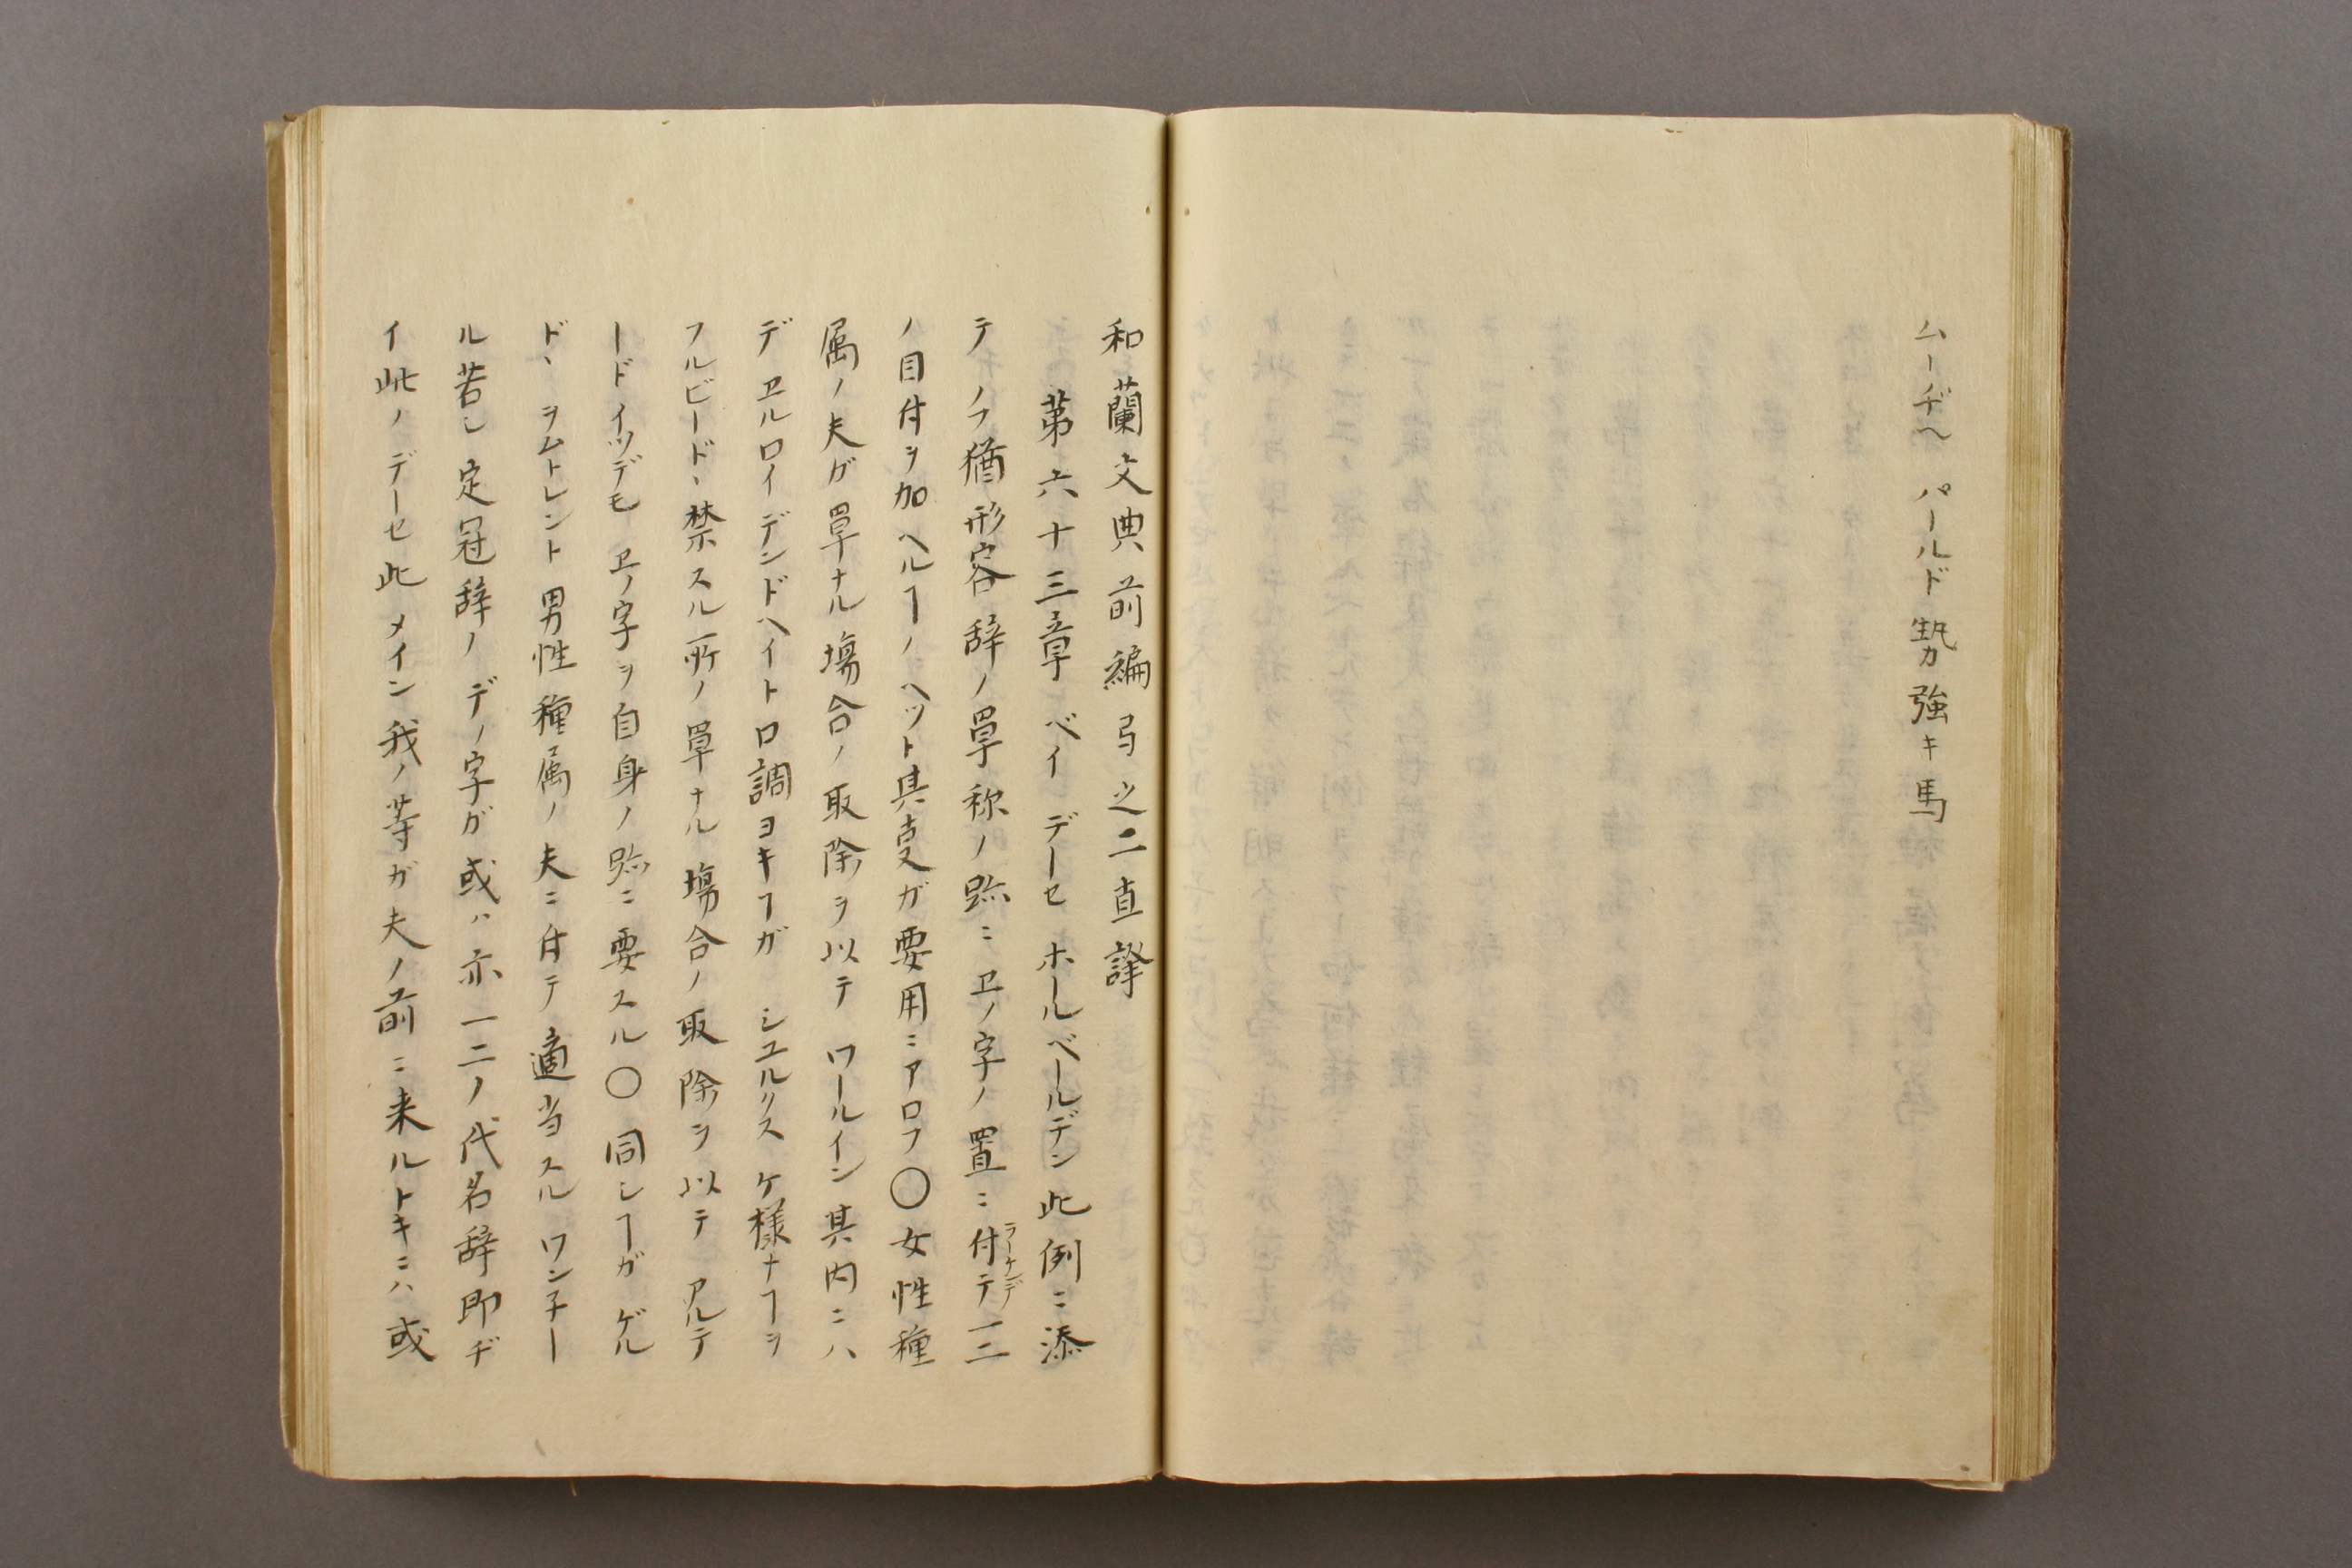 ムーヂヘ パールド 勢強キ馬
和蘭文典前編弓之二直譯
第六十三章 ベイ デーセ ホールベールデン此例ニ添
テ ノフ猶形容辞ノ單称ノ跡ニヱノ字ノ置ニ付テ一二
ラーケンデ
ノ目付ヲ加ヘルヿノヘット其支ガ要用ニアロフ〇女性種
属ノ夫ガ單ナル塲合ノ取除ヲ以テ ワールイン其内ニハ
デ ヱルロイデンドヘイト口調ヨキヿガ シユルクス ケ様ナヿヲ
フルビード、禁スル所ノ單ナル塲合ノ取除ヲ以テ アルテ
ードイツデモ ヱノ字ヲ自身ノ跡ニ要スル〇同シヿガ ゲル
ド、ヲムトレント男性種属ノ夫ニ付テ適当スル ワン子ー
ル若シ定冠辞ノ デノ字ガ或ハ亦一二ノ代名辞即ヂ
イ此ノデーセ此 メイン我ノ等ガ夫ノ前ニ来ルトキニハ或